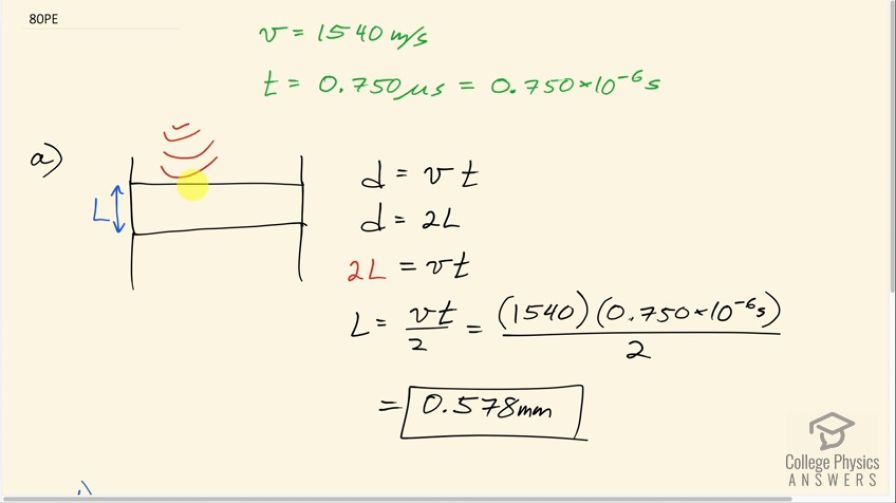 80PE
v = 1540 m/s
t = 0.750 μs = 0.750×10⁻⁶ s
a)
L
d = vt
d = 2L
2L = vt
L = vt/2 = (1540)(0.750×10⁻⁶s)/2
= 0.578mm
College Physics
ANSWERS